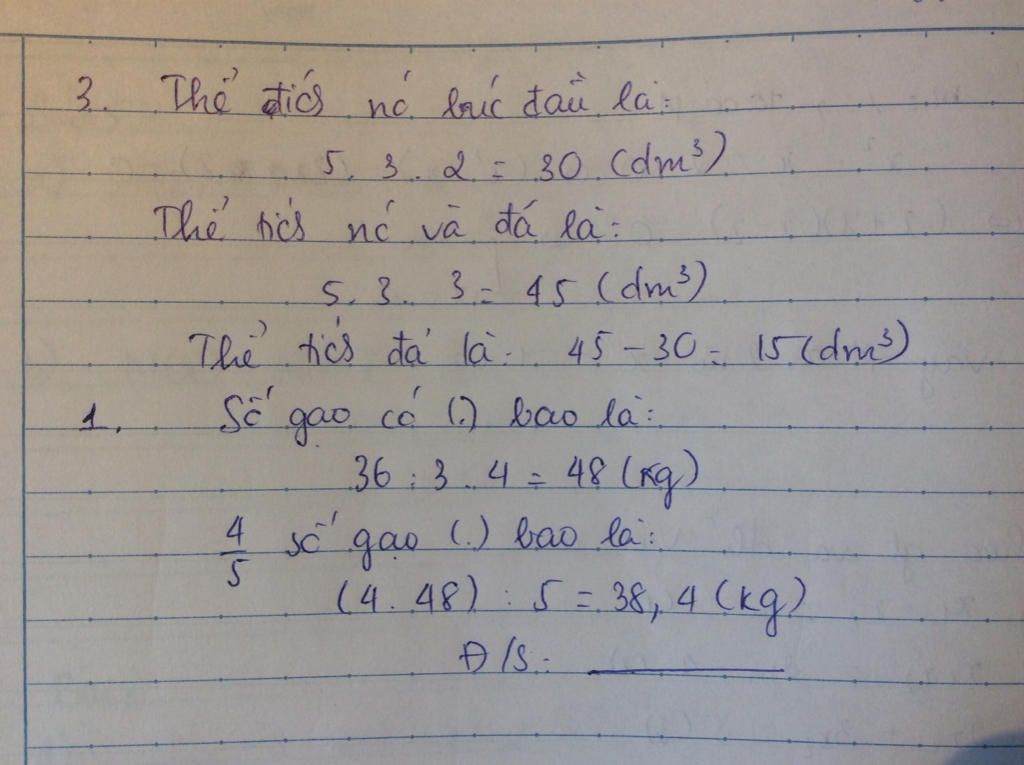 3. Thể tícs nc´ lúc đầu là:
5. 3. 2 = 30 (dm³)
Thể tícs nc´ và đá là:
5. 3. 3 = 45 (dm³)
Thể tícs đá là: 45 - 30 = 15 (dm³)
1. Số gạo có (.) bao là:
36 : 3 . 4 = 48 (kg)
4/5 số gạo (.) bao là:
(4. 48) : 5 = 38,4 (kg)
Đ/S: